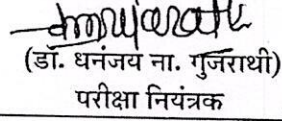 (डॉ. धनंजय ना. गुजराथी)
परीक्षा नियंत्रक